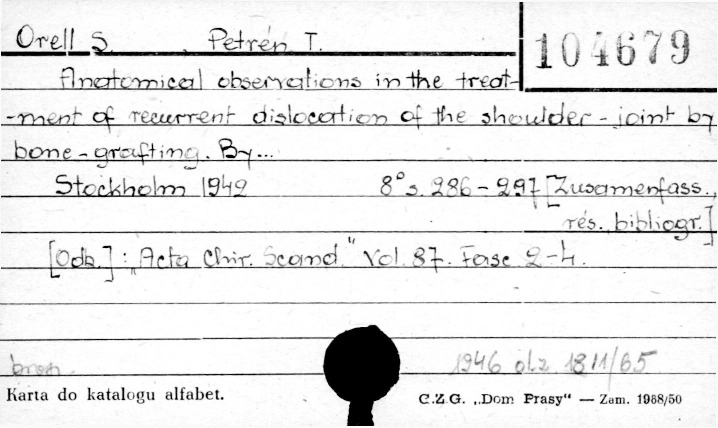 Orell S. , Petrén T.
104679
Anatomical observations in the treat-
-ment of recurrent dislocation of the shoulder-joint by
bone-grafting. By...
Stockholm 1942 8° s. 286-297 [Zusamenfass.,
rés., bibliogr.]
[Odb.]: „Acta Chir. Scand." Vol. 87. Fasc 2-4.
bron. 1946 dlz 1811/65
Karta do katalogu alfabet.
C.Z.G. „Dom Prasy“ — Zam. 1968/50